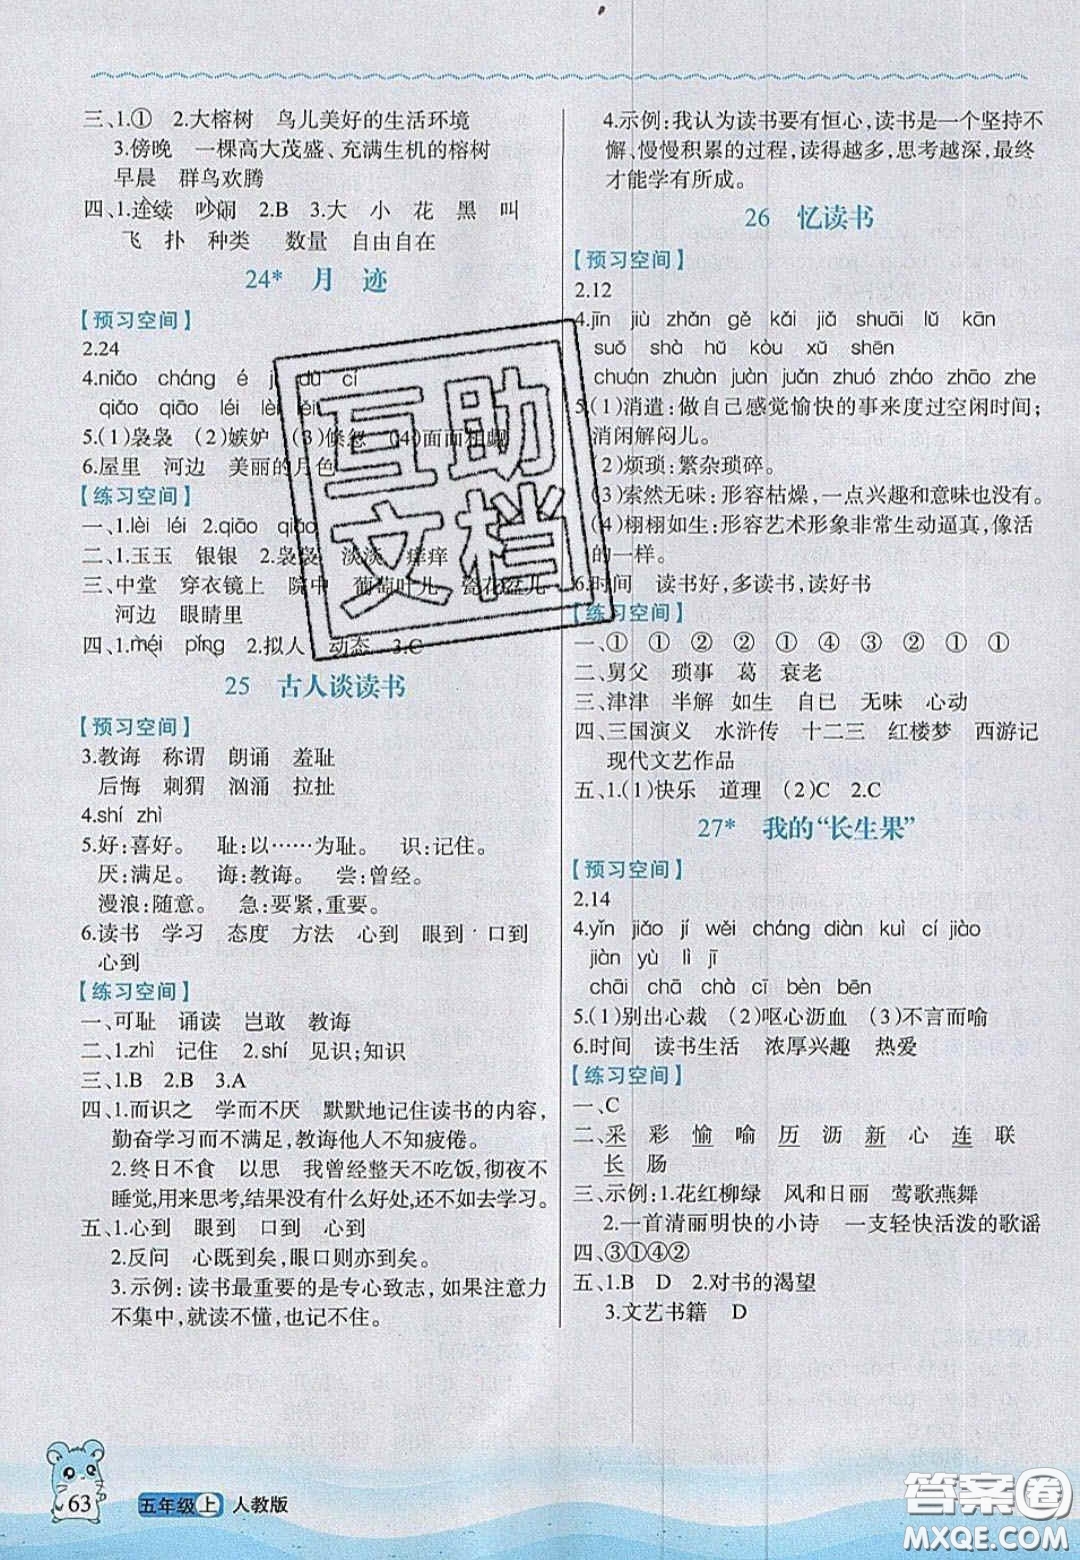 三、1.① 2.大榕树 鸟儿美好的生活环境
3.傍晚 一棵高大茂盛、充满生机的榕树
早晨 群鸟欢腾
四、1.连续 吵闹 2.B 3.大 小 花 黑 叫
飞 扑 种类 数量 自由自在
24* 月 迹
【预习空间】
2.24
4.niǎo cháng é
qiǎo qiāo léi
5.(1)袅袅 (2)嫉妒 (3)倏忽 (4)面面相觑
6.屋里 河边 美丽的月色
【练习空间】
一、1.lèi léi 2.qiāo qiǎo
二、1.玉玉 银银 2.袅袅 淡淡 痒痒
三、中堂 穿衣镜上 院中 葡萄叶儿 瓷花盆儿
河边 眼睛里
四、1.méi pǐng 2.拟人 动态 3.C
25 古人谈读书
【预习空间】
3.教诲 称谓 朗诵 羞耻
后悔 刺猬 汹涌 拉扯
4.shí zhì
5.好:喜好。 耻:以……为耻。 识:记住。
厌:满足。 诲:教诲。 尝:曾经。
漫浪:随意。 急:要紧,重要。
6.读书 学习 态度 方法 心到 眼到 口到
心到
【练习空间】
一、可耻 诵读 岂敢 教诲
二、1.zhì 记住 2.shí 见识;知识
三、1.B 2.B 3.A
四、1.而识之 学而不厌 默默地记住读书的内容,
勤奋学习而不满足,教诲他人不知疲倦。
2.终日不食 以思 我曾经整天不吃饭,彻夜不
睡觉,用来思考,结果没有什么好处,还不如去学习。
五、1.心到 眼到 口到 心到
2.反问 心既到矣,眼口则亦到矣。
3.示例:读书最重要的是专心致志,如果注意力
不集中,就读不懂,也记不住。
4.示例:我认为读书要有恒心,读书是一个坚持不
懈、慢慢积累的过程,读得越多,思考越深,最终
才能学有所成。
26 忆读书
【预习空间】
2.12
4.jīn jiù zhǎn gě kǎi jiǎ shuāi lǔ kān
suǒ shà hǔ kòu xū shēn
chuán zhuàn juàn juǎn zhuó zháo zhāo zhe
5.(1)消遣:做自己感觉愉快的事来度过空闲时间;
消闲解闷儿。
(2)烦琐:繁杂琐碎。
(3)索然无味:形容枯燥,一点兴趣和意味也没有。
(4)栩栩如生:形容艺术形象非常生动逼真,像活
的一样。
6.时间 读书好,多读书,读好书
【练习空间】
一、① ① ② ② ① ④ ③ ② ① ①
二、舅父 琐事 葛 衰老
三、津津 半解 如生 自已 无味 心动
四、三国演义 水浒传 十二三 红楼梦 西游记
现代文艺作品
五、1.(1)快乐 道理 (2)C 2.C
27* 我的“长生果”
【预习空间】
2.14
4.yǐn jiǎo jí wěi cháng diàn kuì cí jiào
jiàn yù lì jī
chāi chā chà cī bèn bēn
5.(1)别出心裁 (2)呕心沥血 (3)不言而喻
6.时间 读书生活 浓厚兴趣 热爱
【练习空间】
一、C
二、采 彩 愉 喻 历 沥 新 心 连 联
长 肠
三、示例:1.花红柳绿 风和日丽 莺歌燕舞
2.一首清丽明快的小诗 一支轻快活泼的歌谣
四、③①④②
五、1.B D 2.对书的渴望
3.文艺书籍 D
互助
文档
63 五年级上 人教版
答案圈
MXQE.COM